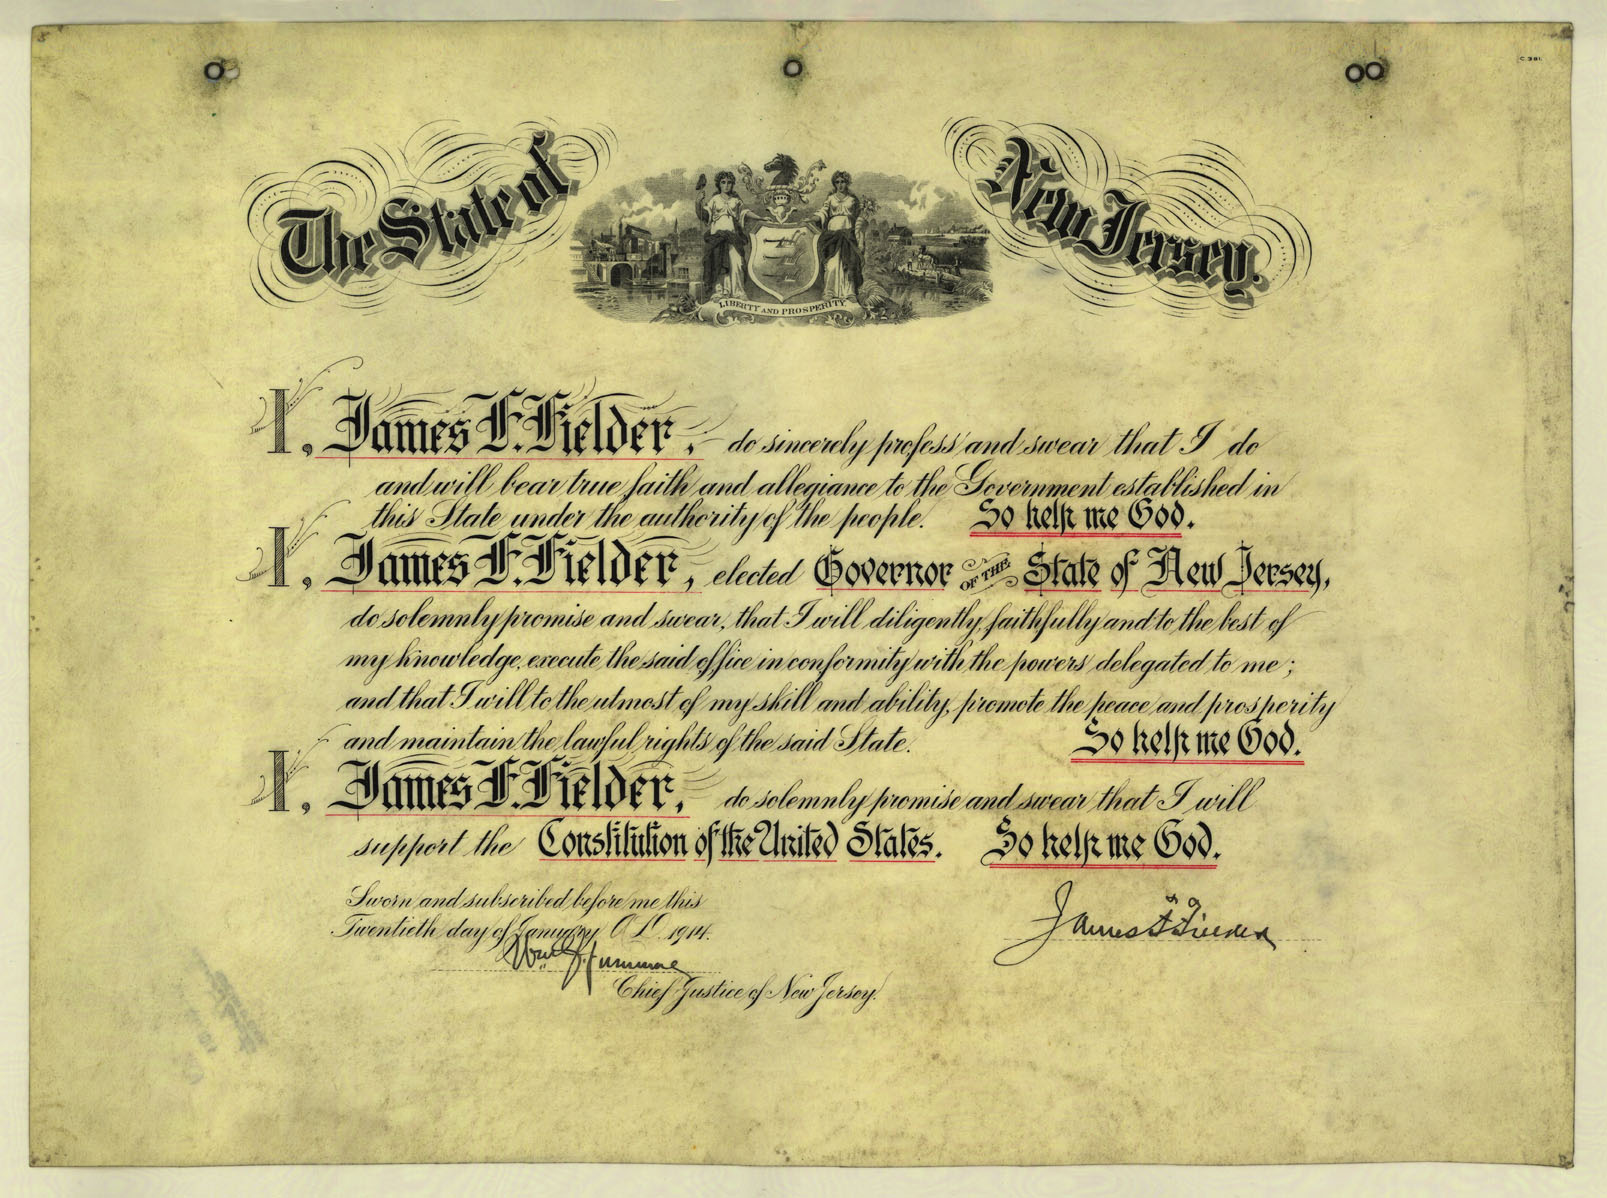 C 381.
The State of New Jersey.
LIBERTY AND PROSPERITY
I, James F. Fielder, do sincerely profess and swear that I do
and will bear true faith and allegiance to the Government established in
this State under the authority of the people. So help me God.
I, James F. Fielder, elected Governor OF THE State of New Jersey,
do solemnly promise and swear, that I will diligently, faithfully and to the best of
my knowledge, execute the said office in conformity with the powers delegated to me;
and that I will to the utmost of my skill and ability, promote the peace and prosperity
and maintain the lawful rights of the said State. So help me God.
I, James F. Fielder, do solemnly promise and swear that I will
support the Constitution of the United States. So help me God.
Sworn and subscribed before me this
Twentieth day of January A.D. 1914.
James F Fielder
Chief Justice of New Jersey.